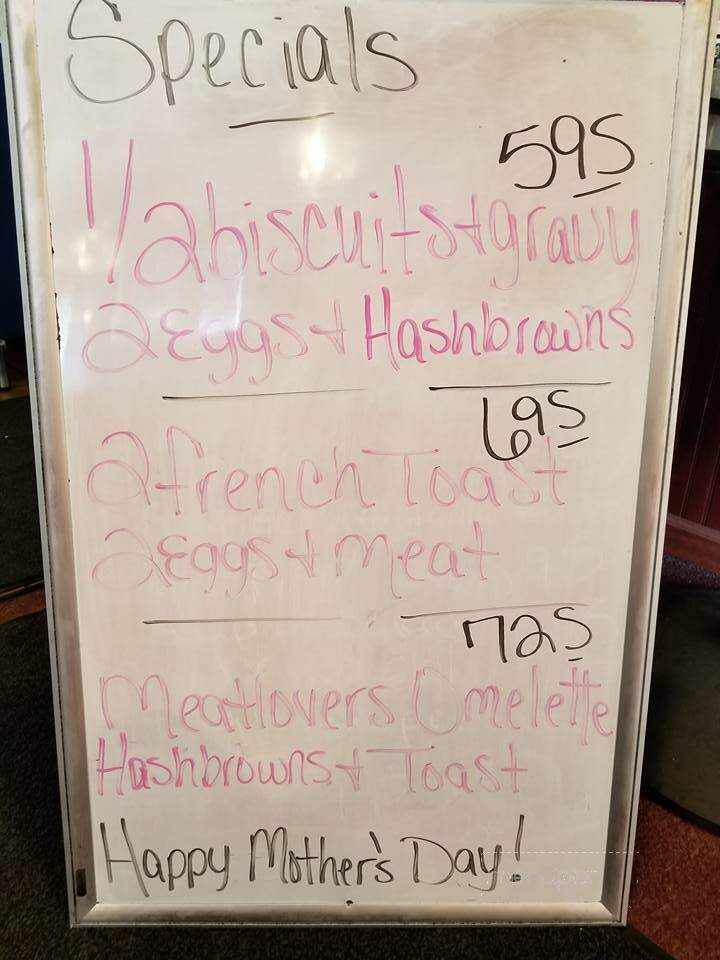 Specials
595
1/2 biscuits + gravy
2 Eggs + Hashbrowns
695
2 french Toast
2 Eggs + meat
725
Meatlovers Omelette
Hashbrowns + Toast
Happy Mother's Day!